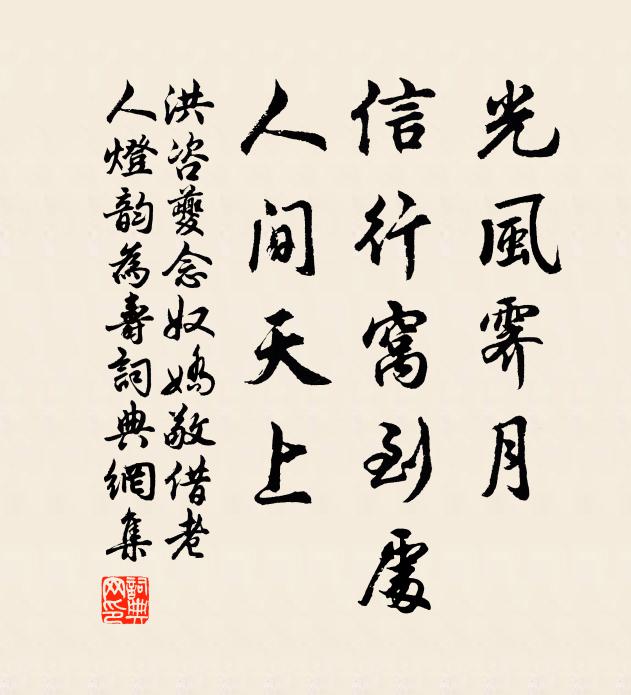 光風霽月
信行窩到處
人間天上
洪咨夔念奴嬌敬借老
人燈韵為壽詞典網集
詞典
网印